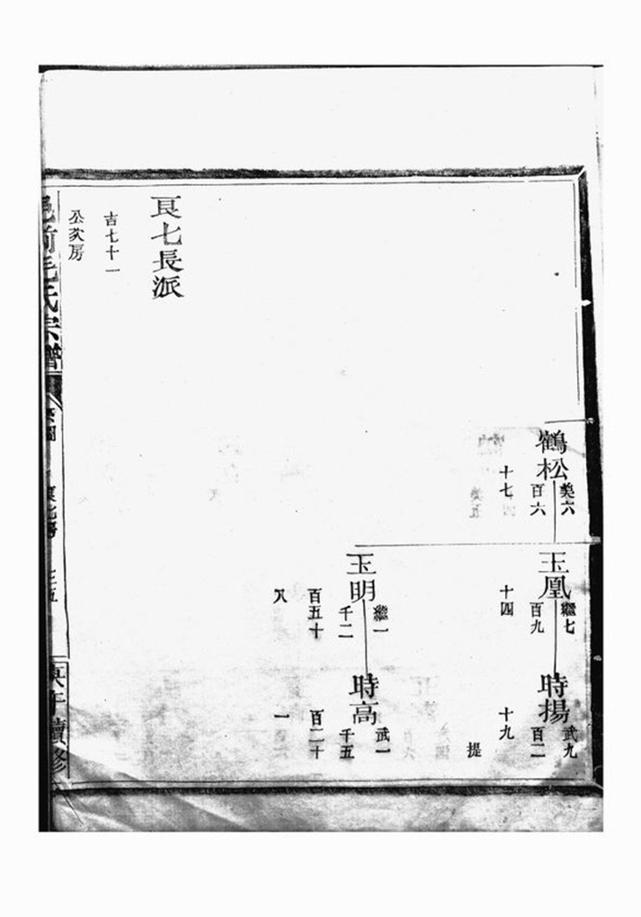 鶴松
美六
百六
十七
玉凰
繼七
百九
十四
時揚
武九
百二
十九
提
玉明
繼一
千二
百五十
時高
武一
千五
百二十
一
良七長派
吉七十一
公次房
前毛氏宗譜
系圖
良七房
續修